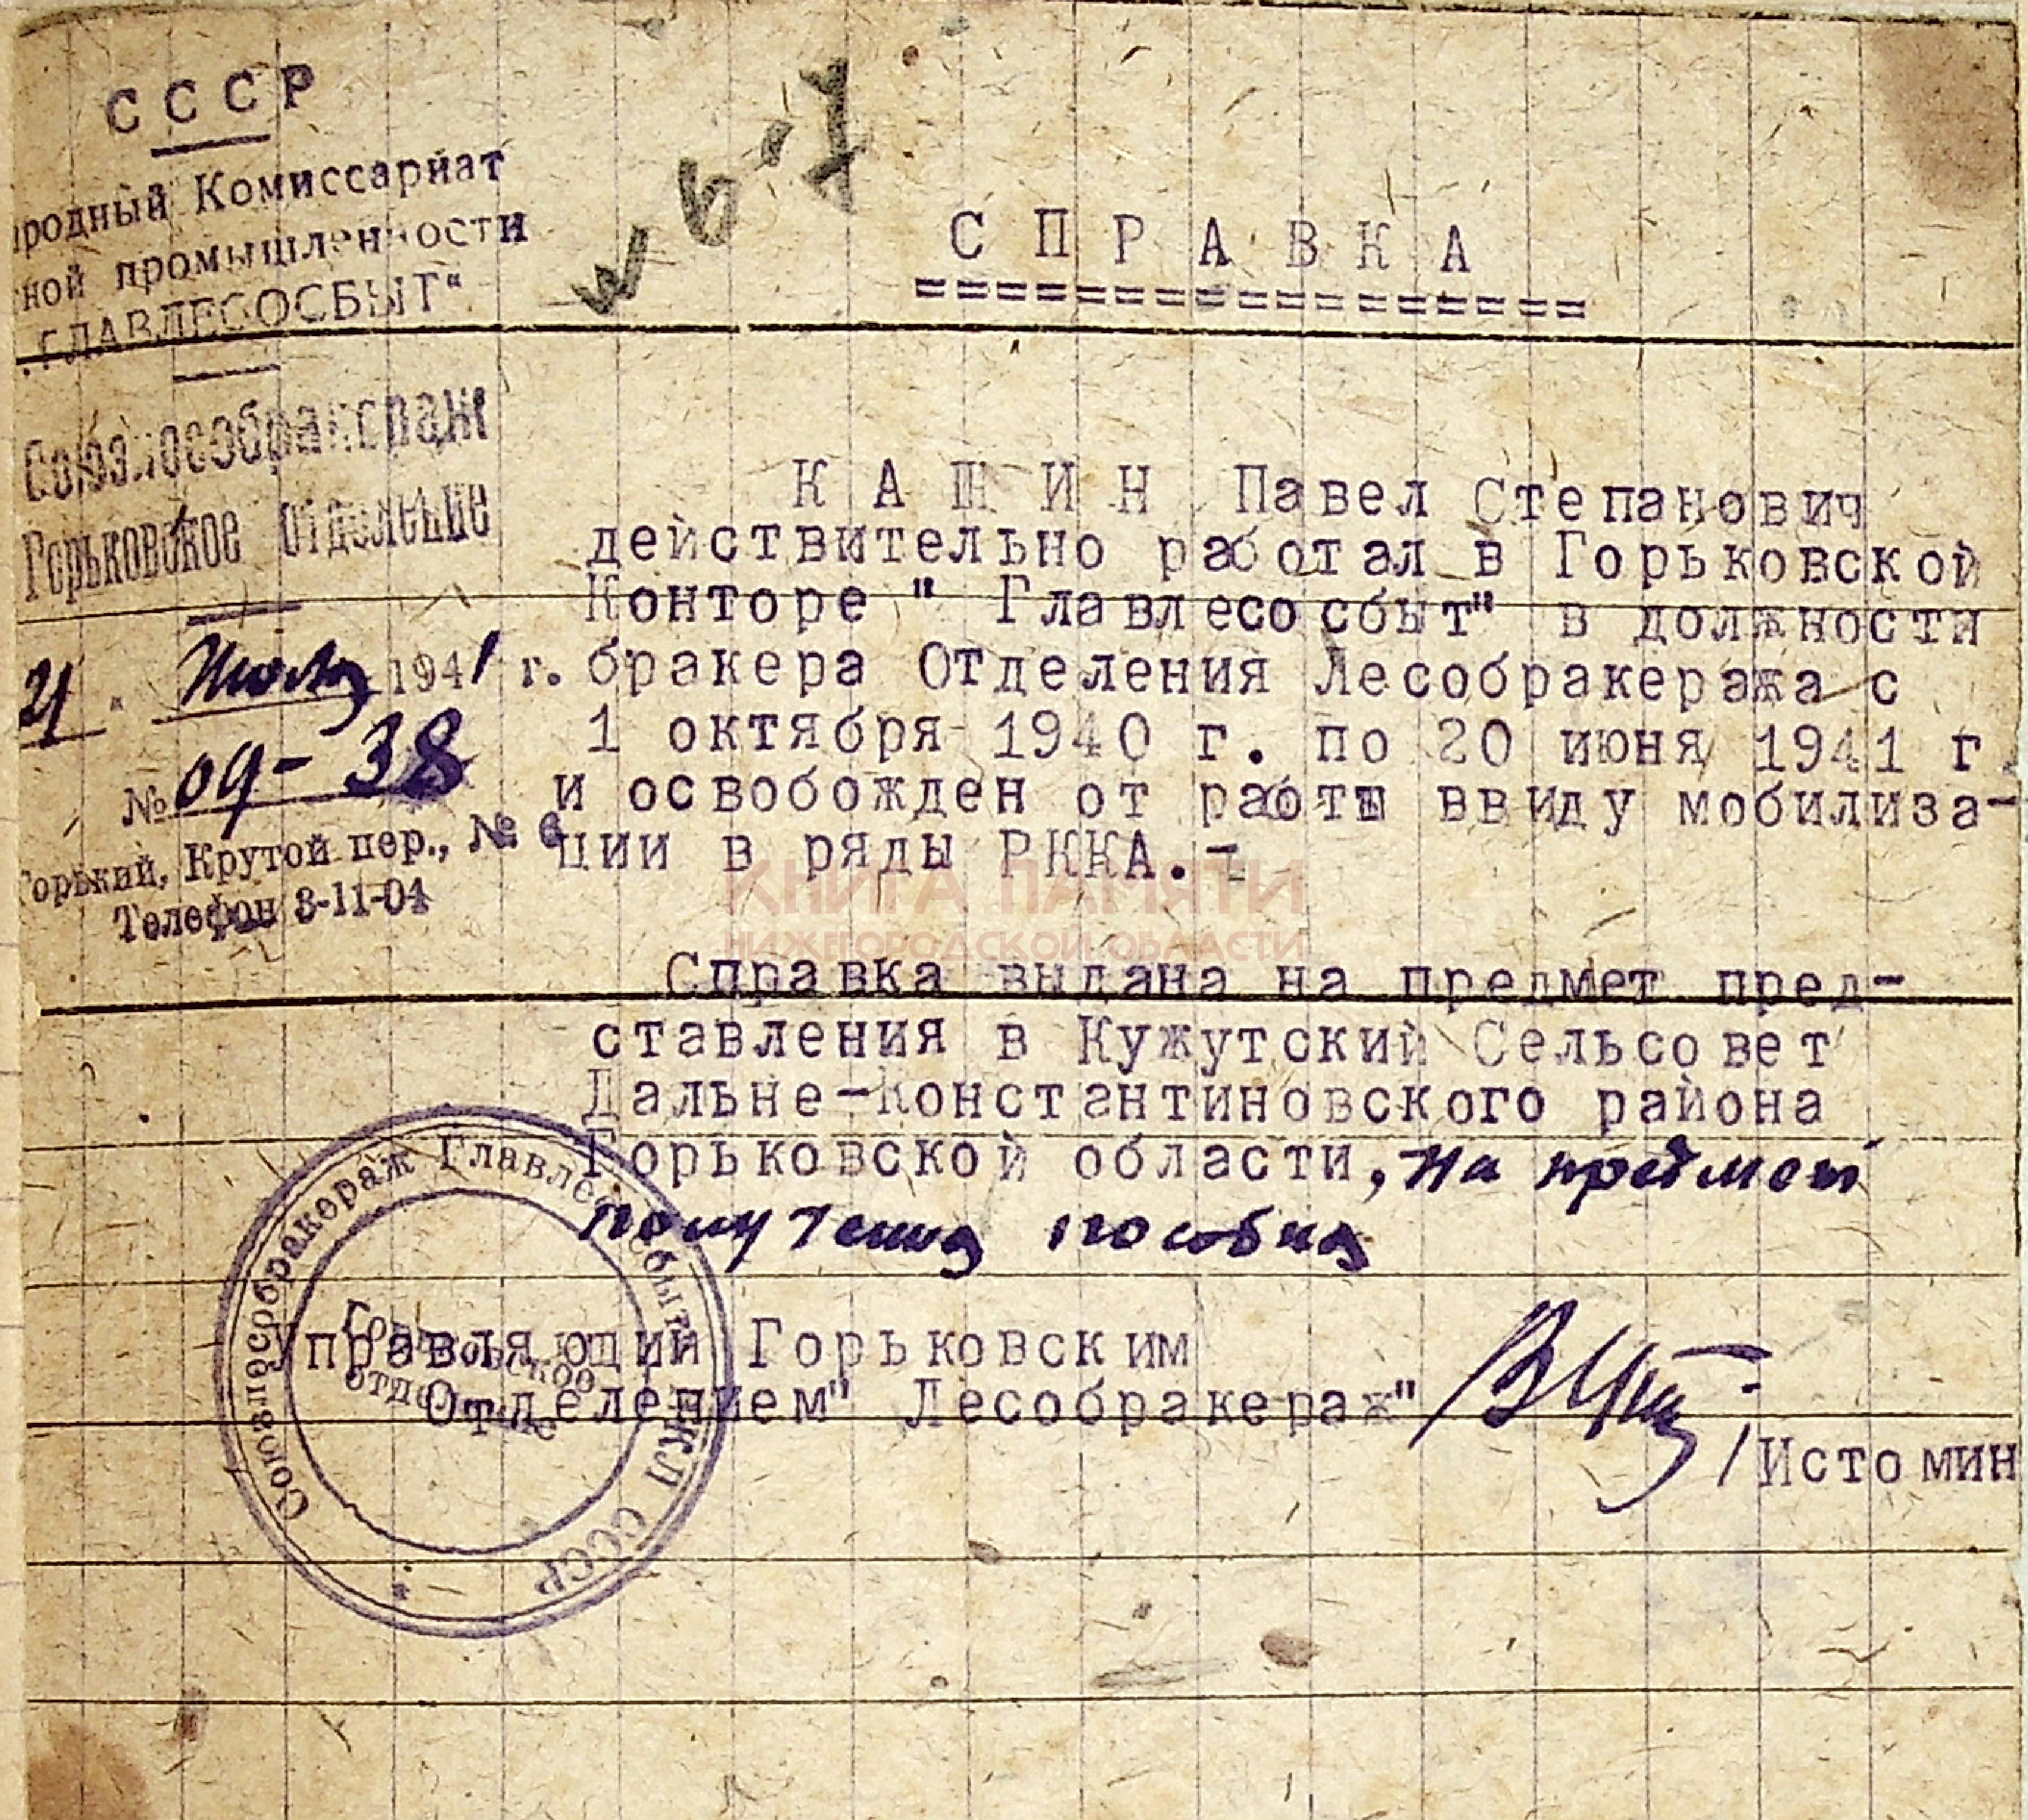 СССР
родный Комиссариат
ной промышленности
"ГЛАВЛЕСОСБЫТ"
Союзлесобракераж
Горьковское отделение
21 " Июля 1941 г.
№ 09-38
Горький, Крутой пер., № 6
Телефон 3-11-04
СПРАВКА
================
КАШИН Павел Степанович
действительно работал в Горьковской
Конторе " Главлесосбыт" в должности
бракера Отделения Лесобракеража с
1 октября 1940 г. по 20 июня 1941 г
и освобожден от работы ввиду мобилиза-
ции в ряды РККА.-
КНИГА ПАМЯТИ
НИЖЕГОРОДСКОЙ ОБЛАСТИ
Справка выдана на предмет пред-
ставления в Кужутский Сельсовет
Дальне-Константиновского района
Горьковской области, на предмет
получения пособия
Управляющий Горьковским
Отделением" Лесобракераж"
/Истомин
Союзлесобракераж Главлесосбыт НКЛ СССР
Горьковское
отделение